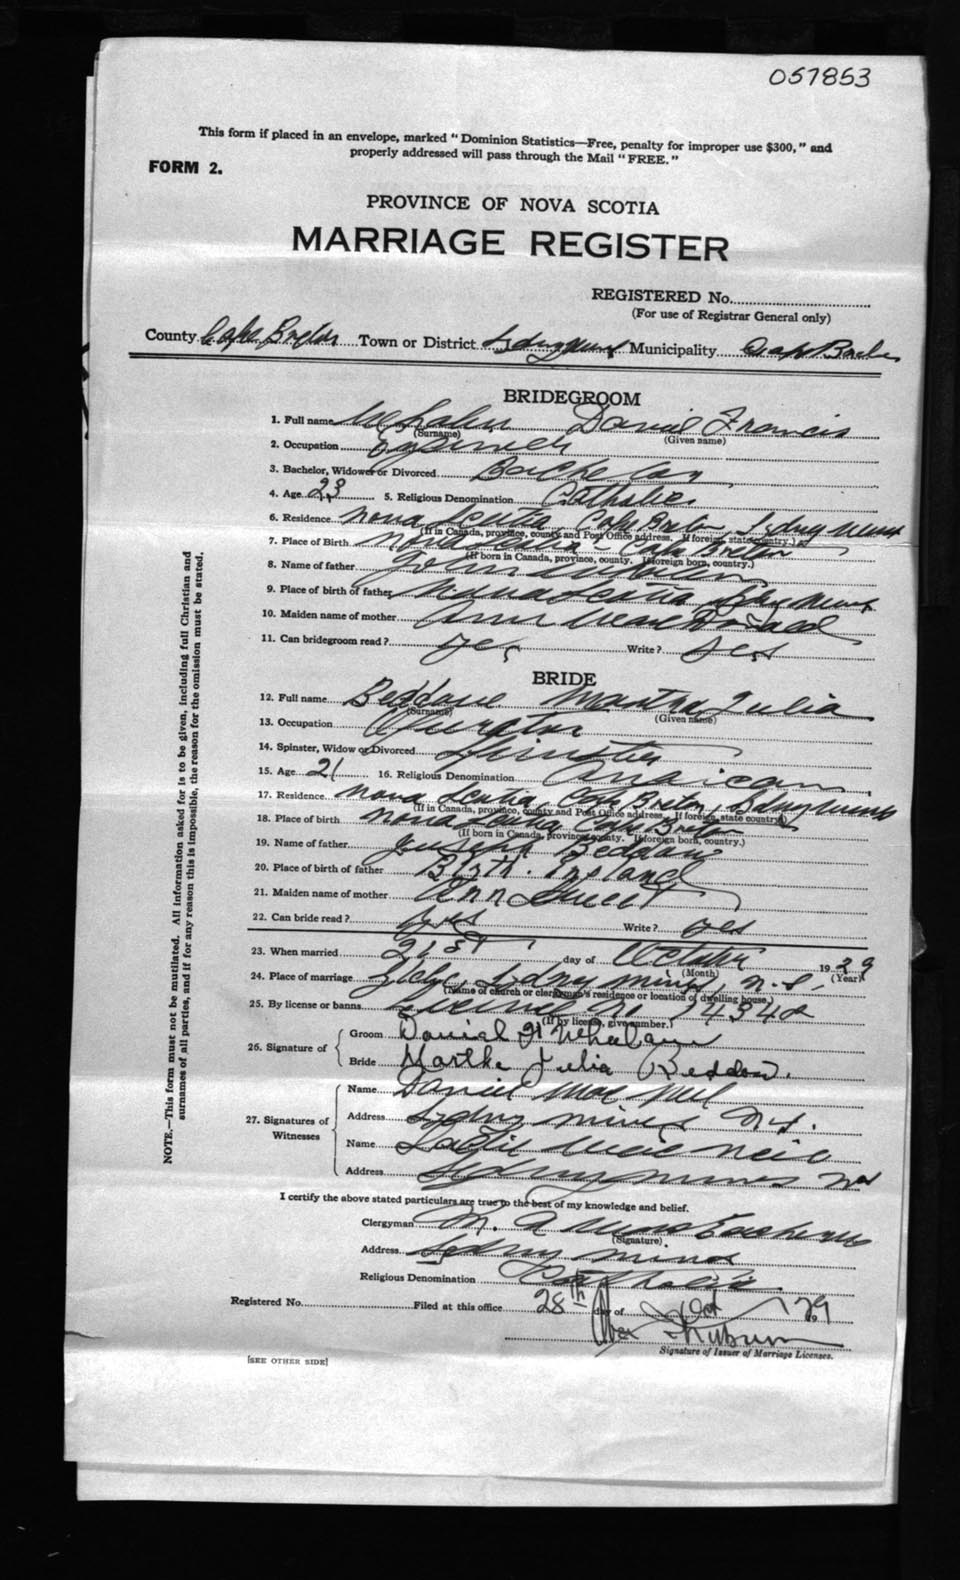 057853
This form if placed in an envelope, marked "Dominion Statistics—Free, penalty for improper use $300," and
properly addressed will pass through the Mail "FREE."
FORM 2.
PROVINCE OF NOVA SCOTIA
MARRIAGE REGISTER
REGISTERED No.
(For use of Registrar General only)
County Cape Breton Town or District Sydney Mines Municipality Cape Breton
BRIDEGROOM
1. Full name Whalen Daniel Francis
(Surname) (Given name)
2. Occupation
3. Bachelor, Widower or Divorced Bachelor
4. Age 23 5. Religious Denomination Catholic
6. Residence Nova Scotia, Cape Breton, Sydney Mines
(If in Canada, province, county and Post Office address. If foreign, state country.)
7. Place of Birth Nova Scotia - Cape Breton
(If born in Canada, province, county. If foreign born, country.)
8. Name of father John Whalen
9. Place of birth of father Nova Scotia, Sydney Mines
10. Maiden name of mother Ann MacDonald
11. Can bridegroom read? Yes Write? Yes
BRIDE
12. Full name Beddow Martha Julia
(Surname) (Given name)
13. Occupation Operator
14. Spinster, Widow or Divorced Spinster
15. Age 21 16. Religious Denomination
17. Residence Nova Scotia, Cape Breton, Sydney Mines
(If in Canada, province, county and Post Office address. If foreign, state country)
18. Place of birth Nova Scotia Cape Breton
(If born in Canada, province, county. If foreign born, country.)
19. Name of father Joseph Beddow
20. Place of birth of father Birth. England
21. Maiden name of mother Ann
22. Can bride read? Yes Write? Yes
23. When married 21st day of October 1929
(Month) (Year)
24. Place of marriage Glebe, Sydney Mines, N.S.
(Name of church or clergyman's residence or location of dwelling house.)
25. By license or banns License No
(If by license, give number.)
26. Signature of Groom Daniel F Whalen
Bride Martha Julia Beddow.
27. Signatures of Witnesses
Name Daniel MacNeil
Address Sydney Mines N.S.
Name MacNeil
Address Sydney Mines N.S.
I certify the above stated particulars are true to the best of my knowledge and belief.
Clergyman M. A.
(Signature)
Address Sydney Mines
Religious Denomination Catholic
Registered No. Filed at this office 28th day of Oct 1929
Signature of Issuer of Marriage Licenses.
[SEE OTHER SIDE]
NOTE.—This form must not be mutilated. All information asked for is to be given, including full Christian and
surnames of all parties, and if for any reason this is impossible, the reason for the omission must be stated.